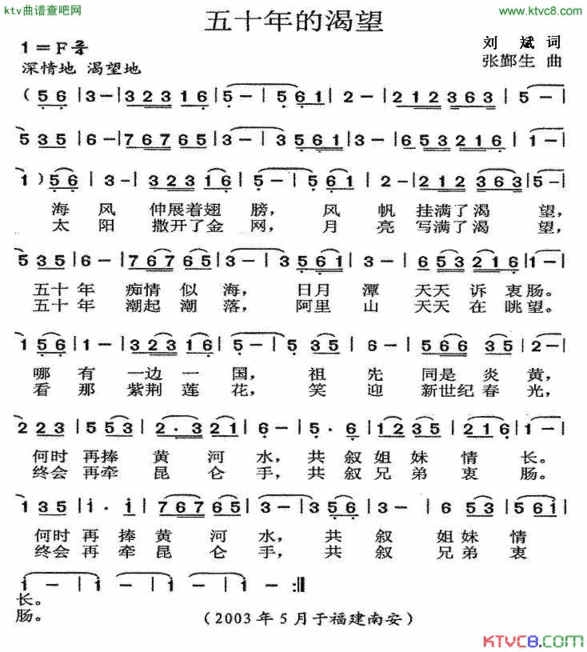 ktv曲谱查吧网
www.ktvc8.com
五十年的渴望
1=F
刘斌 词
张鄞生 曲
深情地 渴望地
(56|3-|32316|5-|5561|2-|212363|5-|
535|6-|76765|3-|3561|3-|653216|1-|
1)56|3-|32316|5-|5561|2-|212363|5-|
海风 伸展着翅膀, 风帆挂满了渴望,
太阳 撒开了金网, 月亮写满了渴望,
535|6-|76765|3-|3561|3-|653216|1-|
五十年 痴情似海, 日月潭 天天诉衷肠。
五十年 潮起潮落, 阿里山 天天在眺望。
156|1-|32316|5-|535|6-|56635|2-|
哪有 一边一国, 祖先 同是炎黄,
看那 紫荆莲花, 笑迎 新世纪春光,
223|553|2·321|6-|5·6|1235|216|1-|
何时再捧黄河水, 共叙姐妹情长。
终会再牵昆仑手, 共叙兄弟衷肠。
135|i·i|76765|3-|356i|3-|653|561|
何时再捧黄河水, 共叙 姐妹情
终会再牵昆仑手, 共叙 兄弟衷
1-|1-|1-|1-:||
长。
肠。
(2003年5月于福建南安)
KTVC8.COM